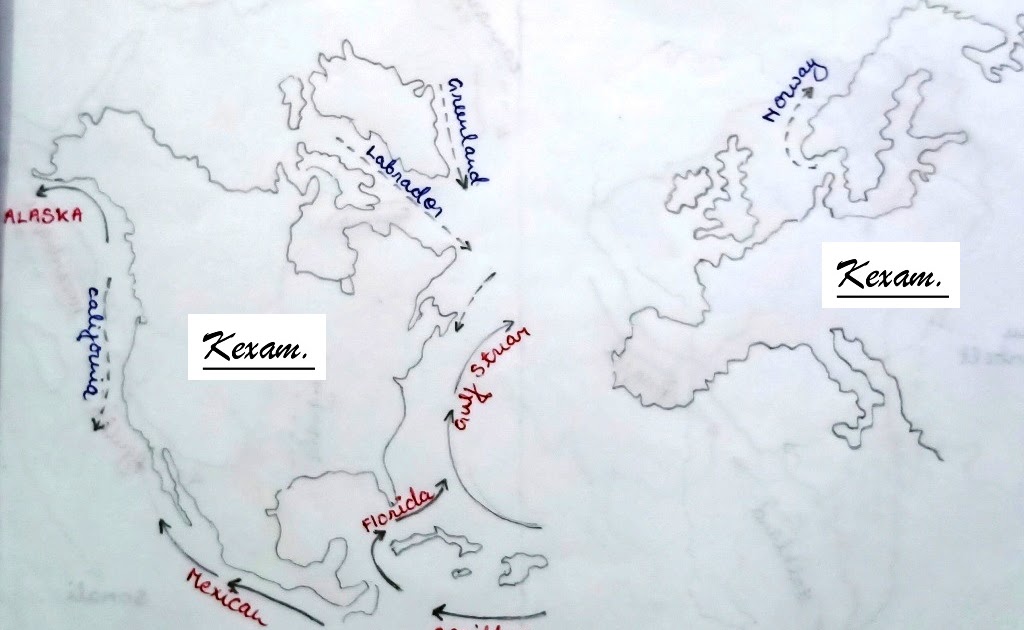 Greenland
Labrador
Norway
ALASKA
California
Kexam.
Kexam.
Gulf Stram
Florida
Mexican